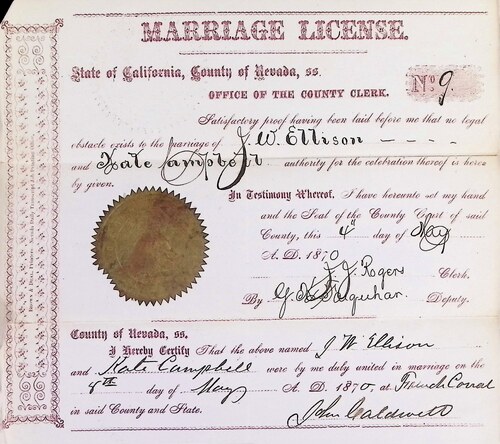 MARRIAGE LICENSE.
State of California, County of Nevada, ss.
No. 9.
OFFICE OF THE COUNTY CLERK.
Satisfactory proof having been laid before me that no legal
obstacle exists to the marriage of J. W. Ellison - - - -
and Kate Campbell authority for the celebration thereof is here-
by given.
In Testimony Whereof, I have hereunto set my hand
and the Seal of the County Court of said
County, this 4th day of May
A. D. 1870
J. J. Rogers Clerk.
By Deputy.
County of Nevada, ss.
I Hereby Certify That the above named J W Ellison
and Kate Campbell were by me duly united in marriage on the
8th day of May A. D. 1870, at French Corral
in said County and State.
John Caldwell